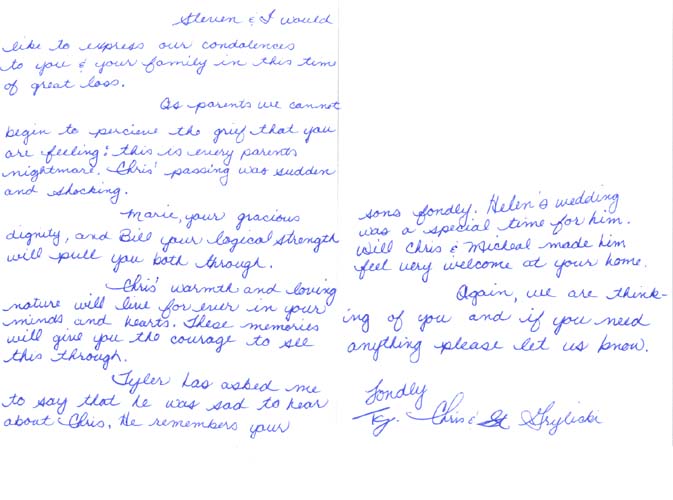 Steven & I would
like to express our condalences
to you & your family in this time
of great loss.
As parents we cannot
begin to percieve the grief that you
are feeling; this is every parents
nightmare. Chris' passing was sudden
and shocking.
Marie, your gracious
dignity, and Bill your logical strength
will pull you both through.
Chris' warmth and loving
nature will live for ever in your
minds and hearts. These memories
will give you the courage to see
this through.
Tyler has asked me
to say that he was sad to hear
about Chris. He remembers your
sons fondly. Helen's wedding
was a special time for him.
Will Chris & Micheal made him
feel very welcome at your home.
Again, we are think-
ing of you and if you need
anything please let us know.
Fondly
Chris &